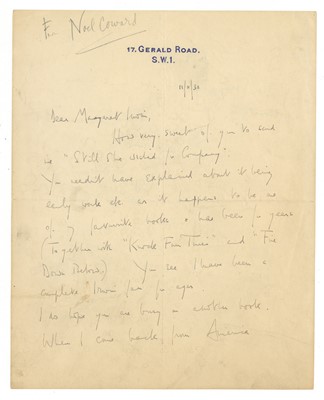 Fr. Noel Coward
17. GERALD ROAD,
S.W.1.
Dear Margaret Irwin,
How very sweet of you to send
me "Still She Wished for Company".
You needn't have explained about it being
early work etc as it happens to be one
of my favourite books & has been for years
(Together with "Knock Four Times" and "Fire
Down Below.) You see I have been a
complete "Irwin fan" for ages
I do hope you are busy on another book.
When I come back from America